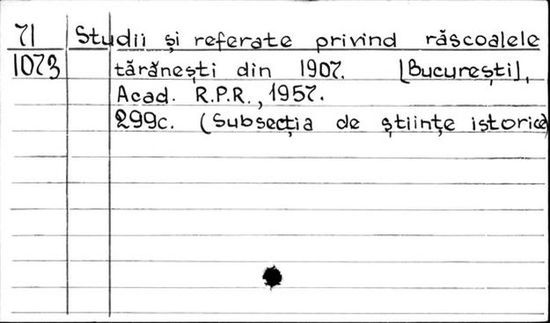 71 Studii și referate privind răscoalele
1073 țărănești din 1907. [București],
Acad. R.P.R., 1957.
299c. (Subsecția de științe istorice)